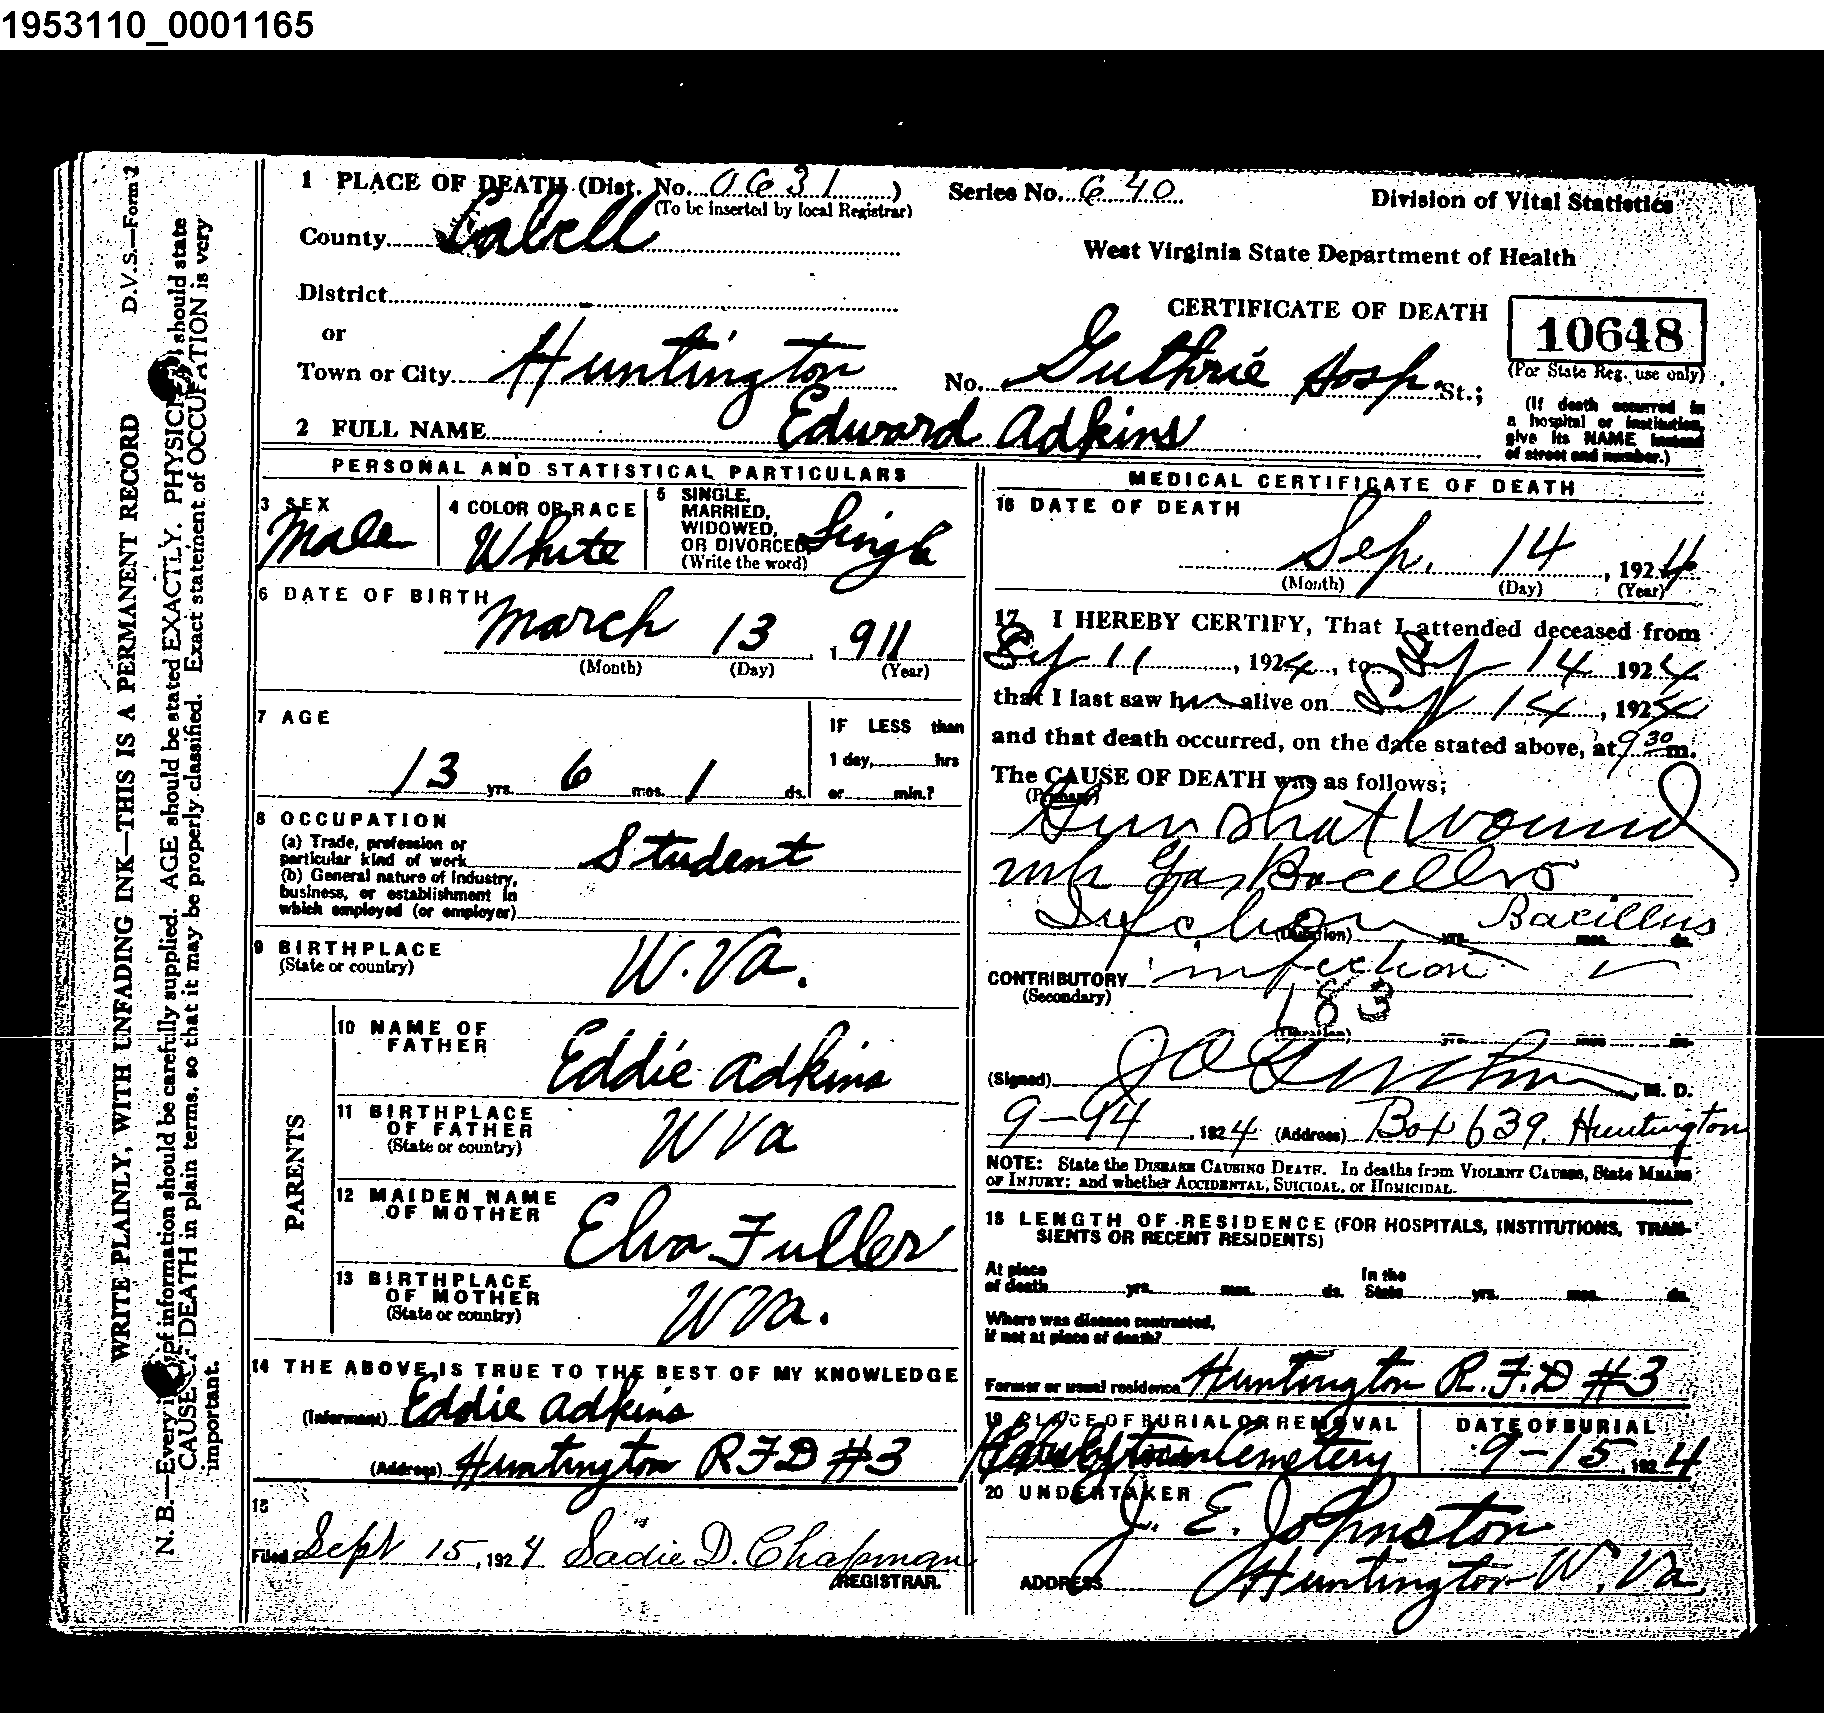 1953110_0001165
D.V.S.—Form 2
WRITE PLAINLY, WITH UNFADING INK—THIS IS A PERMANENT RECORD
N. B.—Every of information should be carefully supplied. AGE should be stated EXACTLY. PHYSICI should state
CAUSE DEATH in plain terms, so that it may be properly classified. Exact statement of OCCUPATION is very
important.
1 PLACE OF DEATH (Dist. No. 0631 ) Series No. 640 Division of Vital Statistics
(To be inserted by local Registrar)
County Cabell
West Virginia State Department of Health
District
CERTIFICATE OF DEATH
10648
(For State Reg. use only)
or
Town or City Huntington No. Guthrie Hosp. St.;
(If death occurred in
a hospital or institution,
give its NAME instead
of street and number.)
2 FULL NAME Edward Adkins
PERSONAL AND STATISTICAL PARTICULARS
3 SEX
Male
4 COLOR OR RACE
White
5 SINGLE,
MARRIED,
WIDOWED,
OR DIVORCED
(Write the word)
Single
6 DATE OF BIRTH
March 13, 1911
(Month) (Day) (Year)
7 AGE
13 yrs. 6 mos. 1 ds.
IF LESS than
1 day, hrs
or min.?
8 OCCUPATION
(a) Trade, profession or
particular kind of work Student
(b) General nature of industry,
business, or establishment in
which employed (or employer)
9 BIRTHPLACE
(State or country) W.Va.
PARENTS
10 NAME OF
FATHER Eddie Adkins
11 BIRTHPLACE
OF FATHER
(State or country) W Va
12 MAIDEN NAME
OF MOTHER Elva Fuller
13 BIRTHPLACE
OF MOTHER
(State or country) W Va.
14 THE ABOVE IS TRUE TO THE BEST OF MY KNOWLEDGE
(Informant) Eddie Adkins
(Address) Huntington RFD #3
15
Filed Sept 15, 1924 Sadie D. Chapman
REGISTRAR.
MEDICAL CERTIFICATE OF DEATH
16 DATE OF DEATH
Sep. 14, 1924
(Month) (Day) (Year)
17 I HEREBY CERTIFY, That I attended deceased from
Sep 11, 1924, to Sep 14 1924
that I last saw h alive on Sep 14, 1924
and that death occurred, on the date stated above, at 9 30 m.
The CAUSE OF DEATH was as follows:
(Primary)
Gun Shot Wound
Gas Bacillus
Infection Bacillus
(Duration) yrs. mos. ds.
CONTRIBUTORY infection
(Secondary)
183
(Duration) yrs. mos. ds.
(Signed) M. D.
9-14, 1924 (Address) Box 639. Huntington
NOTE: State the DISEASE CAUSING DEATH. In deaths from VIOLENT CAUSES, State MEANS
OF INJURY; and whether ACCIDENTAL, SUICIDAL, or HOMICIDAL.
18 LENGTH OF RESIDENCE (FOR HOSPITALS, INSTITUTIONS, TRAN-
SIENTS OR RECENT RESIDENTS)
At place
of death yrs. mos. ds.
In the
State yrs. mos. ds.
Where was disease contracted,
if not at place of death?
Former or usual residence Huntington R.F.D #3
19 PLACE OF BURIAL OR REMOVAL
Cemetery
DATE OF BURIAL
9-15, 1924
20 UNDERTAKER
J. E. Johnston
ADDRESS Huntington W. Va.